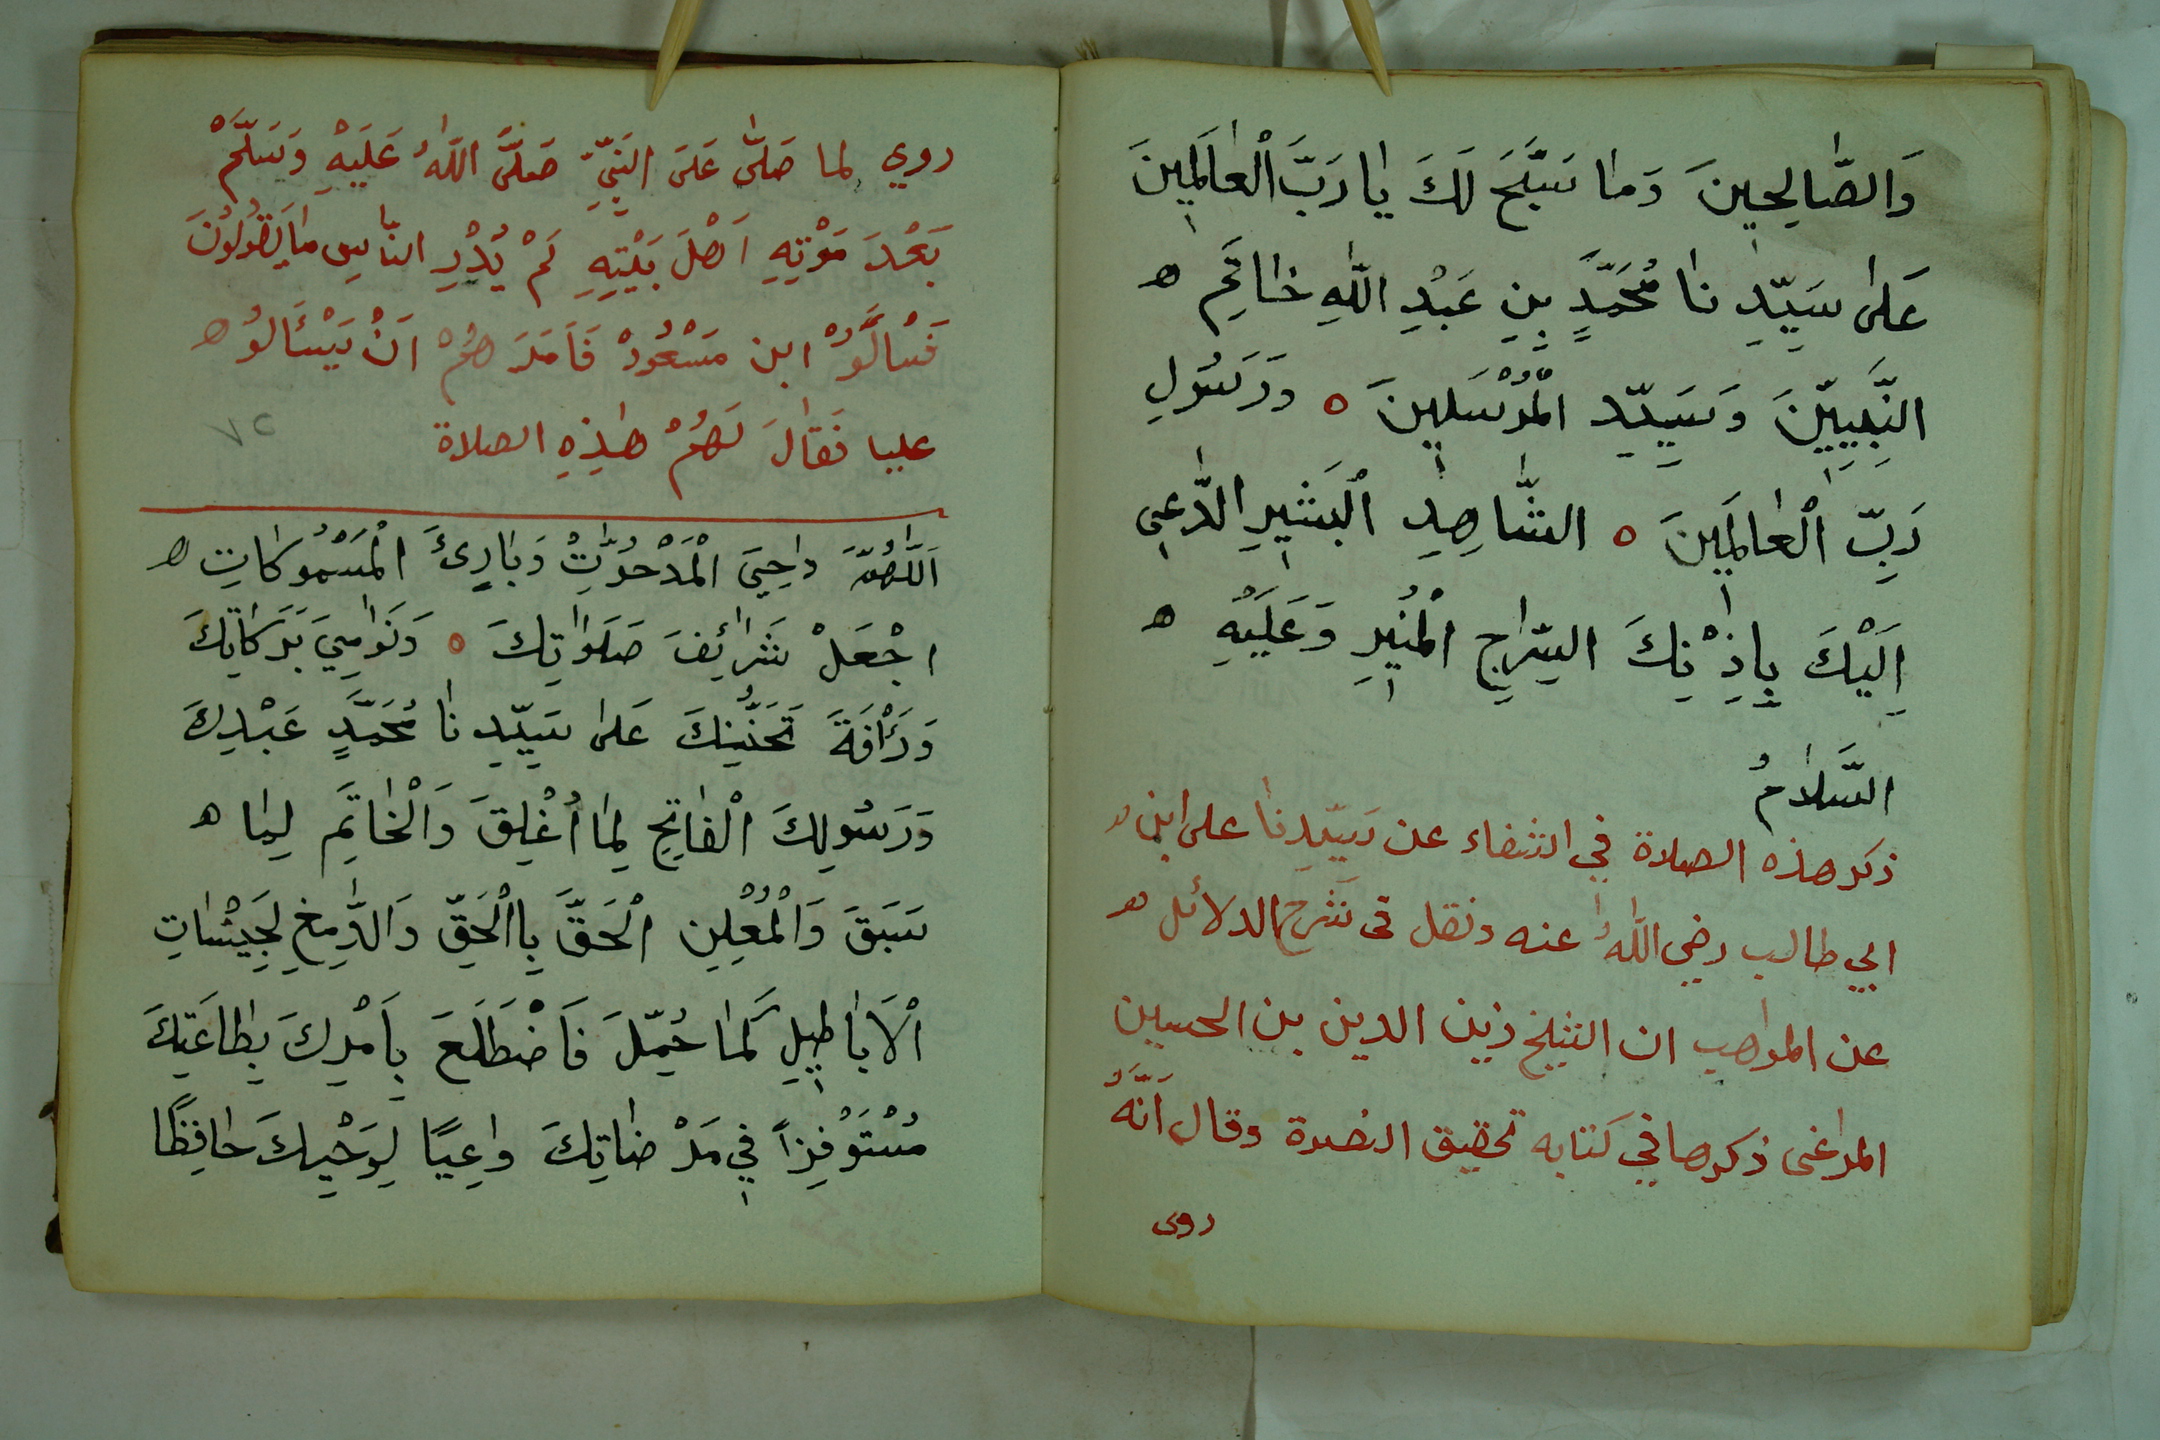 وَالصَّالِحِينَ وَمٰا سَبَّحَ لَكَ يٰا رَبَّ الْعٰالَمِينَ
عَلىٰ سَيِّدِ نٰا مُحَمَّدٍ بِنِ عَبْدِ اللّٰهِ خٰاتَمِ ه
النَّبِيِّينَ وَسَيِّدِ الْمُرْسَلِينَ ه وَرَسُولِ
رَبِّ الْعٰالَمِينَ ه الشّٰاهِدِ الْبَشِيرِ الدّٰعِي
اِلَيْكَ بِاِذْنِكَ السِّرٰاجِ الْمُنِيرِ وَعَلَيْهِ ه
السَّلٰامُ
ذكر هذه الصلاة في الشفاء عن سَيِّدِنٰا على ابن ه
ابي طالب رضي اللّٰهُ عنه ونقل في شَرْحِ الدلائل ه
عن المواهب ان الشيخ زين الدين بن الحسين
المراغى ذكرها في كتابه تحقيق النصرة وقال اَنَّهُ
روى
روي لما صَلّٰى عَلَى النَبِيِّ صَلَّى اللّٰهُ عَلَيْهِ وَسَلَّمْ
بَعْدَ مَوْتِهِ اَهْلَ بَيْتِهِ لَمْ يُدْرِ النّٰاس مٰا يَقُولُونَ
فَسْالَُوْ ابن مَسْعُودْ فَاَمَرَ هُمْ اَنْ يَسْئَالُو ه
عليا فَقٰالَ لَهُمْ هٰذِهِ الصلاة
٧٢
اَللّٰهُمَّ دٰاحِيَ الْمَدْحُوّٰتْ وَبٰارِئَ الْمَسْمُوكٰاتِ ه
اجْعَلْ شَرٰائِفَ صَلَوٰاتِكَ ه وَنَوٰامِيَ بَرَكٰاتِكَ
وَرَأْفَةَ تَحَنُّنِكَ عَلىٰ سَيِّدِ نٰا مُحَمَّدٍ عَبْدِكَ
وَرَسُولِكَ الْفٰاتِحِ لِمٰا اُغْلِقَ وَالْخٰاتَمِ لِمٰا ه
سَبَقَ وَالْمُعْلِنِ الْحَقَّ بِاالْحَقِّ وَالدّٰمِغِ لِجَيْشٰاتِ
الْاَبٰاطِيلِ كَمٰا حُمِّلَ فَاضْطَلَعَ بِاَمْرِكَ بِطٰاعَتِكَ
مُسْتَوْفِزاً فِي مَرْ ضٰاتِكَ وٰاعِيًا لِوَحْيِكَ حٰافِظًا